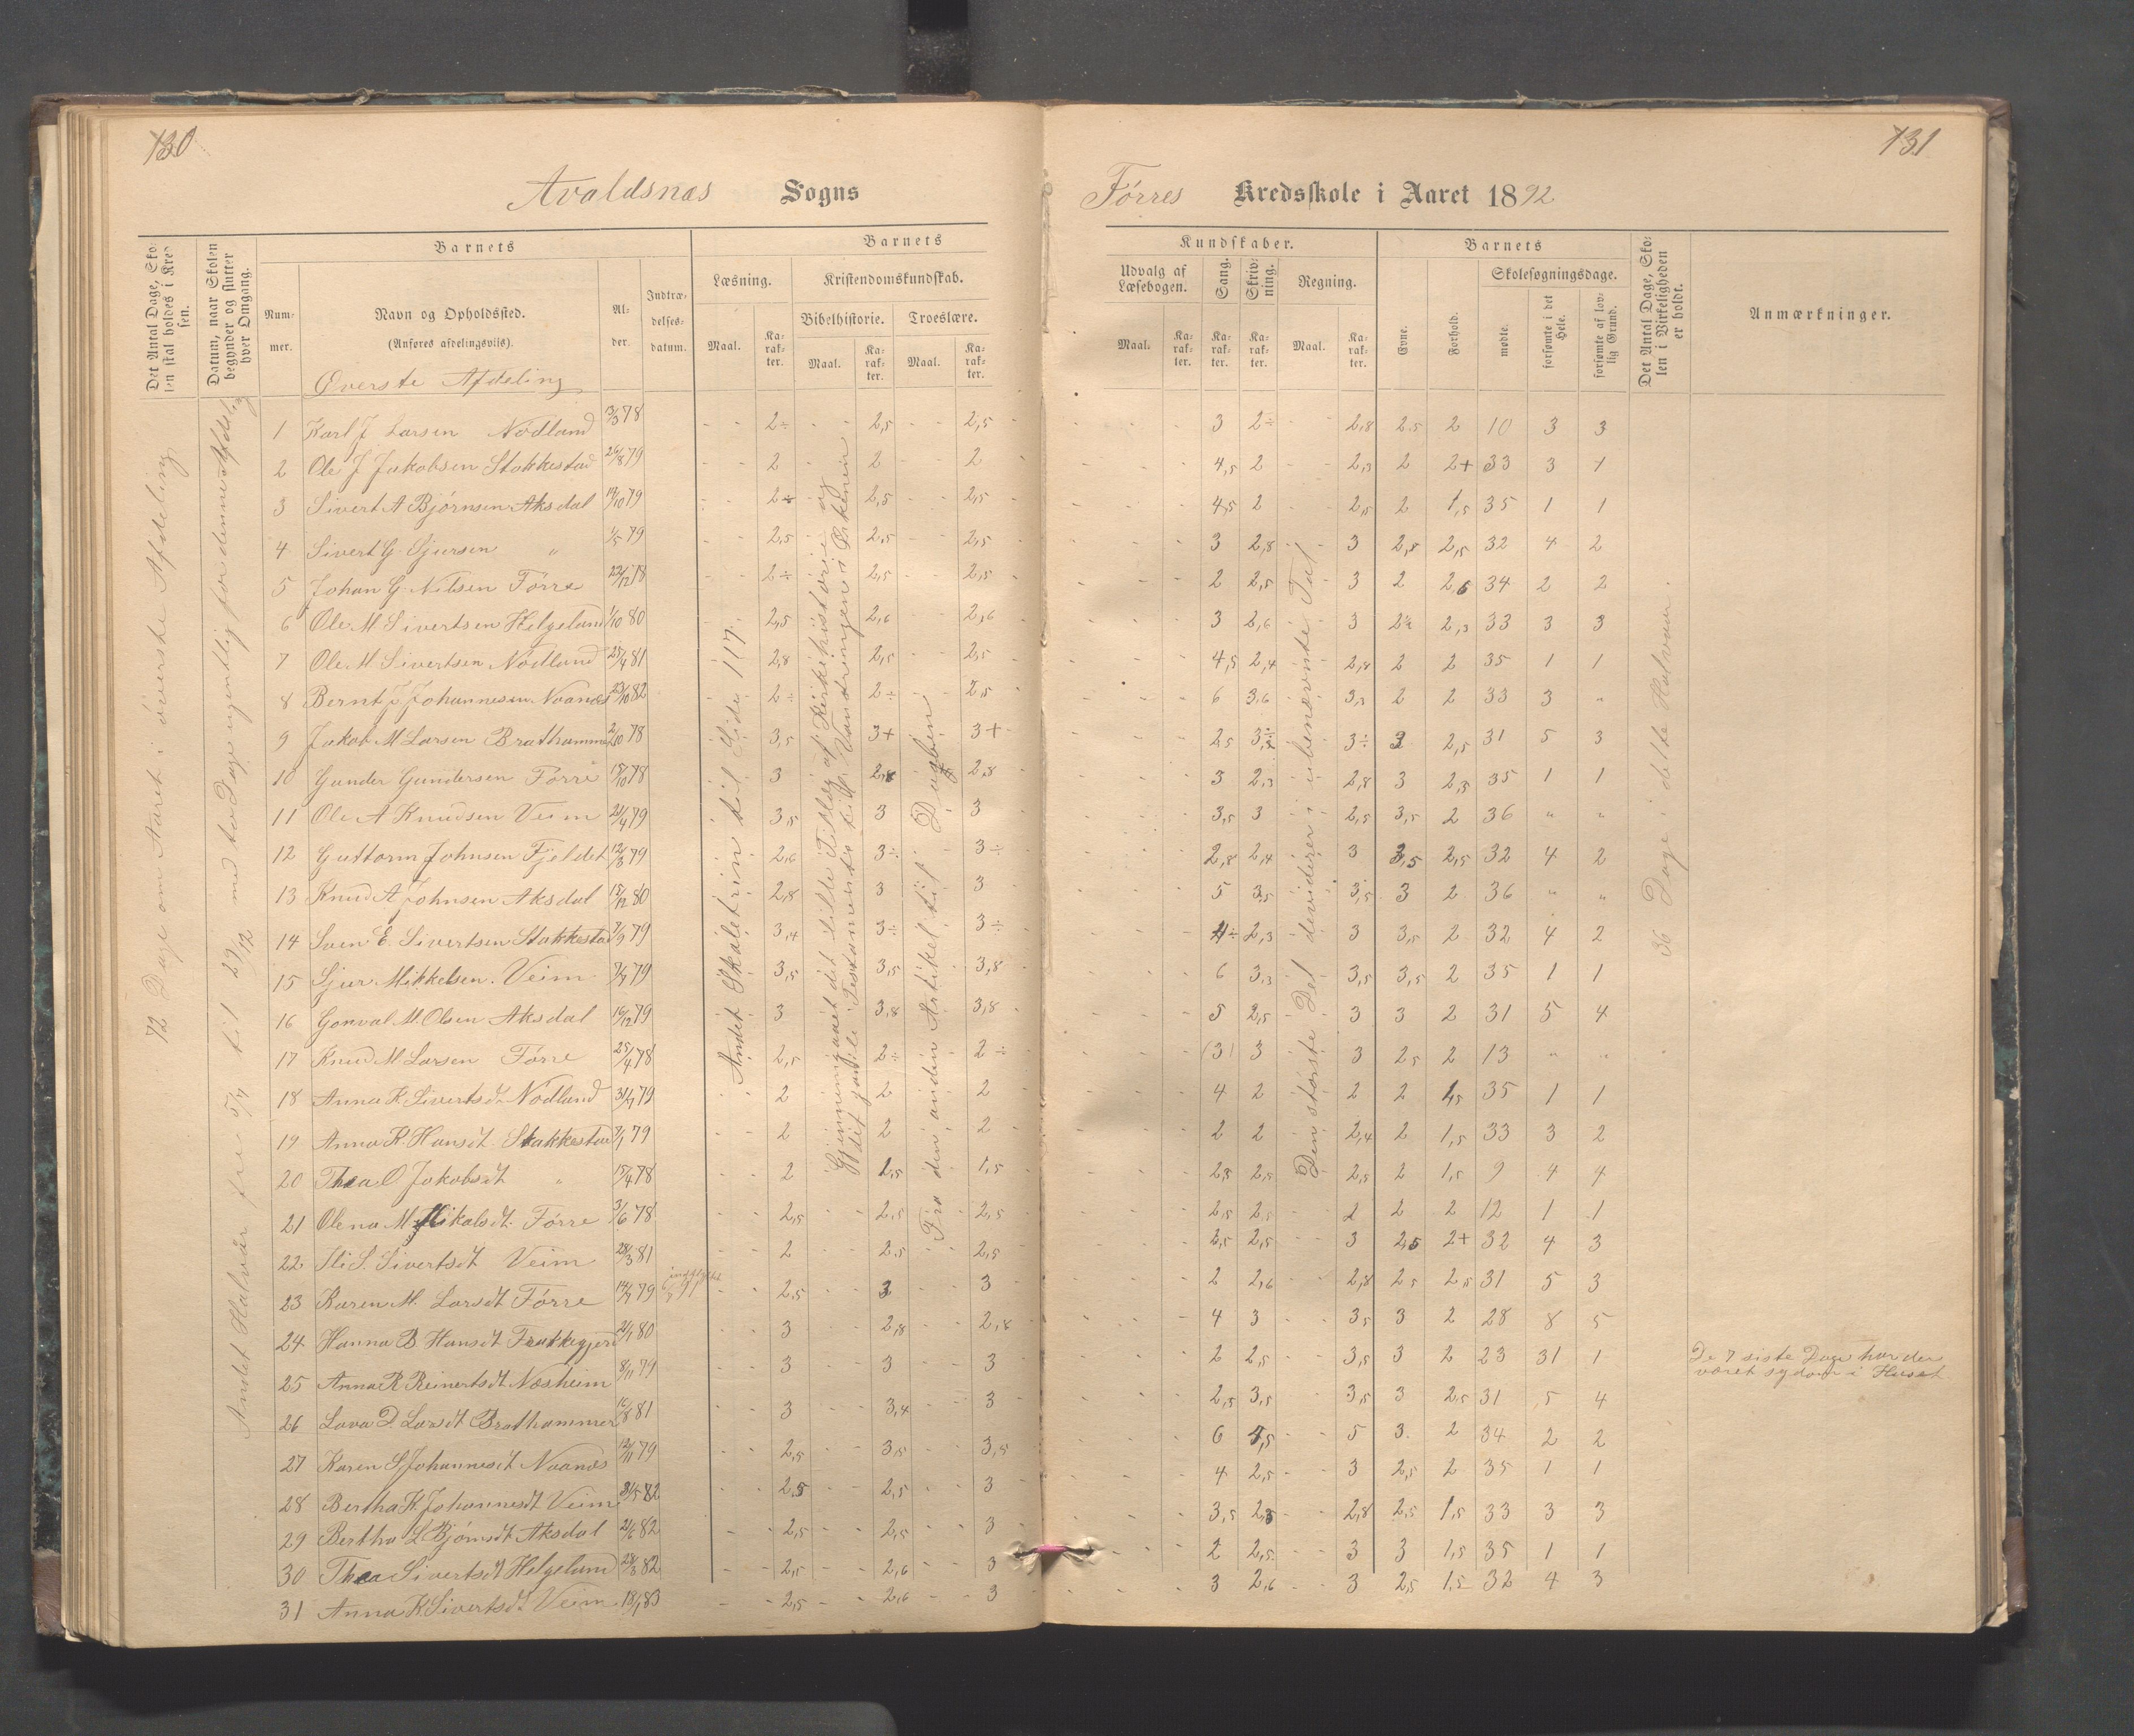 130
131
Avaldsnæs Sogns
Førres Kredsskole i Aaret 1892
Det Antal Dage, Skolen skal holdes i Kredsen.
Datum, naar Skolen begynder og slutter hver Omgang.
Barnets
Nummer.
Navn og Opholdssted.
(Anføres afdelingsvis).
Alder.
Indtrædelsesdatum.
Barnets
Læsning.
Kristendomskundskab.
Bibelhistorie.
Troeslære.
Maal.
Karakter.
Maal.
Karakter.
Maal.
Karakter.
Kundskaber.
Udvalg af Læsebogen.
Sang.
Skrivning.
Regning.
Maal.
Karakter.
Karakter.
Karakter.
Maal.
Karakter.
Barnets
Evne.
Forhold.
Skolesøgningsdage.
mødte.
forsømte i det Hele.
forsømte af lovlig Grund.
Det Antal Dage, Skolen i Virkeligheden er holdt.
Anmærkninger.
Øverste Afdeling
72 Dage om Aaret i øverste Afdeling
Andet Skoletrin til Side 117.
Fra den anden Artikel til Daaben
Den største Del dividerer i ubenævnte Tal
36 Dage i dette Halvaar.
1 Karl J Larsen Nødland 13/3 78 2÷ 2,5 2,5 3 2÷ 2,8 2,5 2 10 3 3
2 Ole J Jakobsen Stakkestad 26/8 79 2 2 2 4,5 2 2,3 2 2+ 33 3 1
3 Sivert A Bjørnsen Aksdal 19/10 79 2÷ 2,5 2,5 4,5 2 2,5 2 1,5 35 1 1
4 Sivert G. Sjursen " 1/5 79 2,5 2,5 2,5 3 2,8 3 2,8 2,5 32 4 2
5 Johan G. Nilsen Førre 23/12 78 2÷ 2,5 2,5 2 2,5 3 2 2,5 34 2 2
6 Ole M Sivertsen Helgeland 1/10 80 2,5 2,6 2,6 3 2,6 3 2,3 33 3 3
7 Ole M. Sivertsen Nødland 25/4 81 2,8 2,5 2,5 4,5 2,4 2,8 2 2 35 1 1
8 Bernt J Johannesen Naanæs 23/10 82 2÷ 2÷ 2,5 6 3,6 3,3 2 2 33 3 "
9 Jakob M Larsen Brathammer 2/10 78 3,5 3+ 3+ 2,5 3÷ 3 2,5 31 5 3
10 Gunder Gundersen Førre 15/10 78 3 2,8 2,8 3 2,3 2,8 3 2,5 35 1 1
11 Ole A Knudsen Veim 21/4 79 3,5 3 3 3,5 3 2,5 3,5 2 36 " "
12 Guttorm Johnsen Fjeldet 12/3 79 2,6 3÷ 3÷ 2,8 2,4 3 3,5 2,5 32 4 2
13 Knud A Johnsen Aksdal 15/12 80 2,8 3 3 5 3,5 3,5 3 2 36 " "
14 Sven E. Sivertsen Stakkestad 7/9 79 3,4 3÷ 3÷ 4÷ 2,3 3 3,5 2 32 4 2
15 Sjur Mikkelsen. Veim 79 3,5 3,5 3,8 6 3,3 3,5 3,5 2 35 1 1
16 Gonval M. Olsen Aksdal 16/12 79 3 3,8 3,8 5 2,5 3 3 2 31 5 4
17 Knud M Larsen Førre 25/4 78 2,5 2÷ 2÷ (3) 3 3 2,5 2 13 " "
18 Anna K. Sivertsdt. Nødland 31/7 79 2 2 2 4 2 2 2 1,5 35 1 1
19 Anna K. Hansdt. Stakkestad 79 2 2 2 2 2 2,4 2 1,5 33 3 2
20 Thea O Jakobsdt " 15/4 78 2 1,5 1,5 2,5 2,5 2,5 2 1,5 9 4 4
21 Olena M. Mikalsdt. Førre 3/6 78 2,5 2,5 2,5 2,5 2,5 2 2 2 12 1 1
22 S. Sivertsdt Veim 28/3 81 2 2,5 2,5 2,5 2,5 3 2,5 2+ 32 4 3
23 Karen M. Larsdt Førre 79 2,5 3 3 2 2,6 2,8 2,5 2,5 31 5 3
24 Hanna B Hansdt 21/1 80 3 2,8 2,8 4 3 3,5 3 2 28 8 5
25 Anna R Reinertsdt Næsheim 8/11 79 3 3 3 2 2,5 3,5 3 2 23 31 1 De 7 siste Dage har der været sygdom i Huset
26 Lava D Larsdt Brathammer 16/8 81 3 3,4 3 2,5 3,5 3,5 3 2,5 31 5 4
27 Karen S Johannesdt Naanæs 12/11 79 2,5 3,5 3,5 6 4,5 5 3 2 34 2 2
28 Bertha K. Johannesdt Veim 31/5 82 2,5 2,5 3 4 2,5 3 2,5 2 35 1 1
29 Bertha L Bjørnsdt Aksdal 21/6 82 2,5 2,5 3 3,5 2,8 2,8 2,5 1,5 33 3 3
30 Thea Sivertsdt Helgeland 28/8 82 2,5 2,6 3 2 2,5 3 3 1,5 35 1 1
31 Anna K Sivertsdt Veim 18/1 83 2,5 2,6 3 3 2,6 3 2,5 1,5 32 4 3